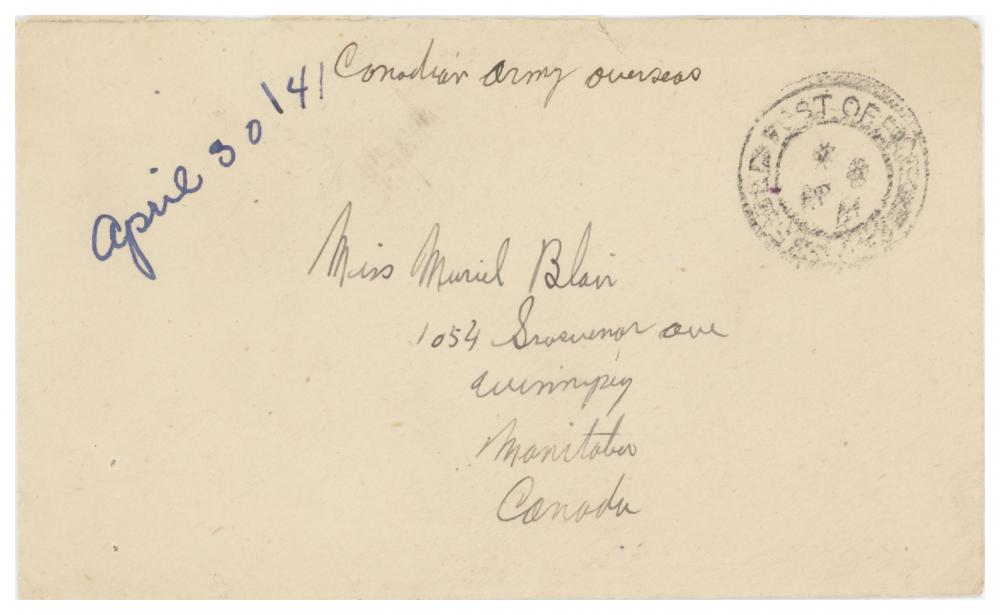 Canadian army overseas
April 30/41
POST OFFICE
AP
41
Miss Muriel Blair
1054 Grosvenor ave
Winnipeg
Manitoba
Canada